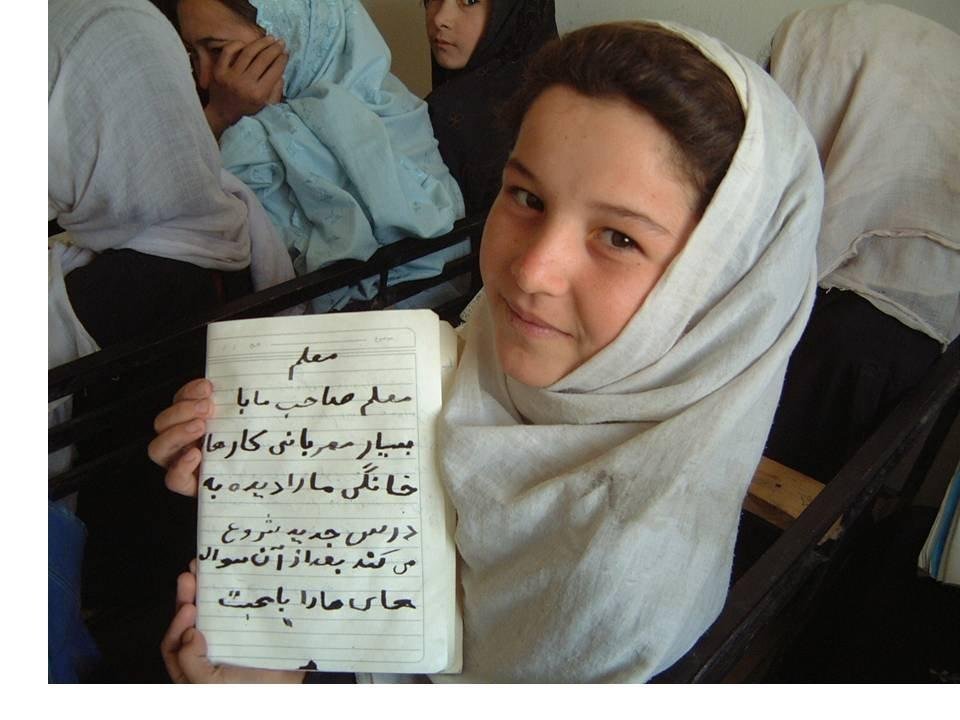 معلم
معلم صاحب ما با
بسیار مهربانی کارها
خانگی ما را دیده به
درس جدید شروع
می کند بعد از آن سوال
های ما را با محبت